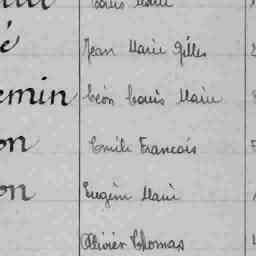 Louis Marie
é Jean Marie Gilles
emin Léon Louis Marie
on Emile Francois
on Eugène Marie
Olivier Thomas